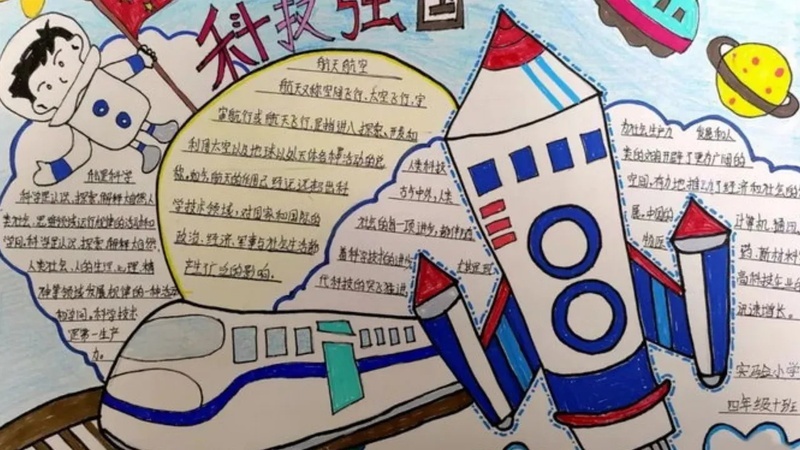 科技强国
航天航空
航天又称空间飞行,太空飞行,宇
宙航行或航天飞行,是指进入、探索、开发和
利用太空以及地球以外天体各种活动的总
称。如今航天的作用已经远远超出科
学技术领域,对国家和国际的
政治、经济、军事与社会生活都
产生了广泛的影响。
热爱科学
科学是认识、探索、解释大自然、人
类社会、思维领域运行规律的活动和
学问。科学是认识、探索、解释大自然、
人类社会、人的生理、心理、精
神等领域发展规律的一种活动
和学问。科学技术
是第一生产
力。
人类科技
古今中外,人类
社会的每一项进步,都伴随
着科学技术的进步
代科技的突飞猛进
为社会生产力 发展和人
类的文明开辟了更为广阔的
空间,有力地推动了经济和社会的
展。中国的
计算机、通讯
药、新材料
高科技企业
迅速增长。
实验小学
四年级十班